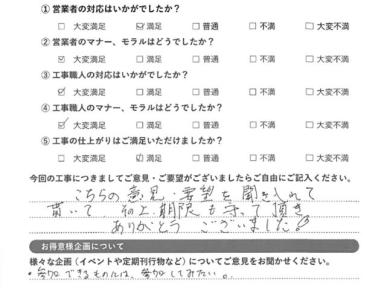 ① 営業者の対応はいかがでしたか?
□ 大変満足 ☑ 満足 □ 普通 □ 不満 □ 大変不満
② 営業者のマナー、モラルはどうでしたか?
☑ 大変満足 □ 満足 □ 普通 □ 不満 □ 大変不満
③ 工事職人の対応はいかがでしたか?
☑ 大変満足 □ 満足 □ 普通 □ 不満 □ 大変不満
④ 工事職人のマナー、モラルはどうでしたか?
☑ 大変満足 □ 満足 □ 普通 □ 不満 □ 大変不満
⑤ 工事の仕上がりはご満足いただけましたか?
□ 大変満足 ☑ 満足 □ 普通 □ 不満 □ 大変不満
今回の工事につきましてご意見・ご要望がございましたらご自由にご記入ください。
こちらの意見・要望を聞き入れて
貰いて その上期限も守って頂き
ありがとうございました
お得意様企画について
様々な企画(イベントや定期刊行物など)についてご意見をお聞かせください。
・参加できるものには、参加してみたい。